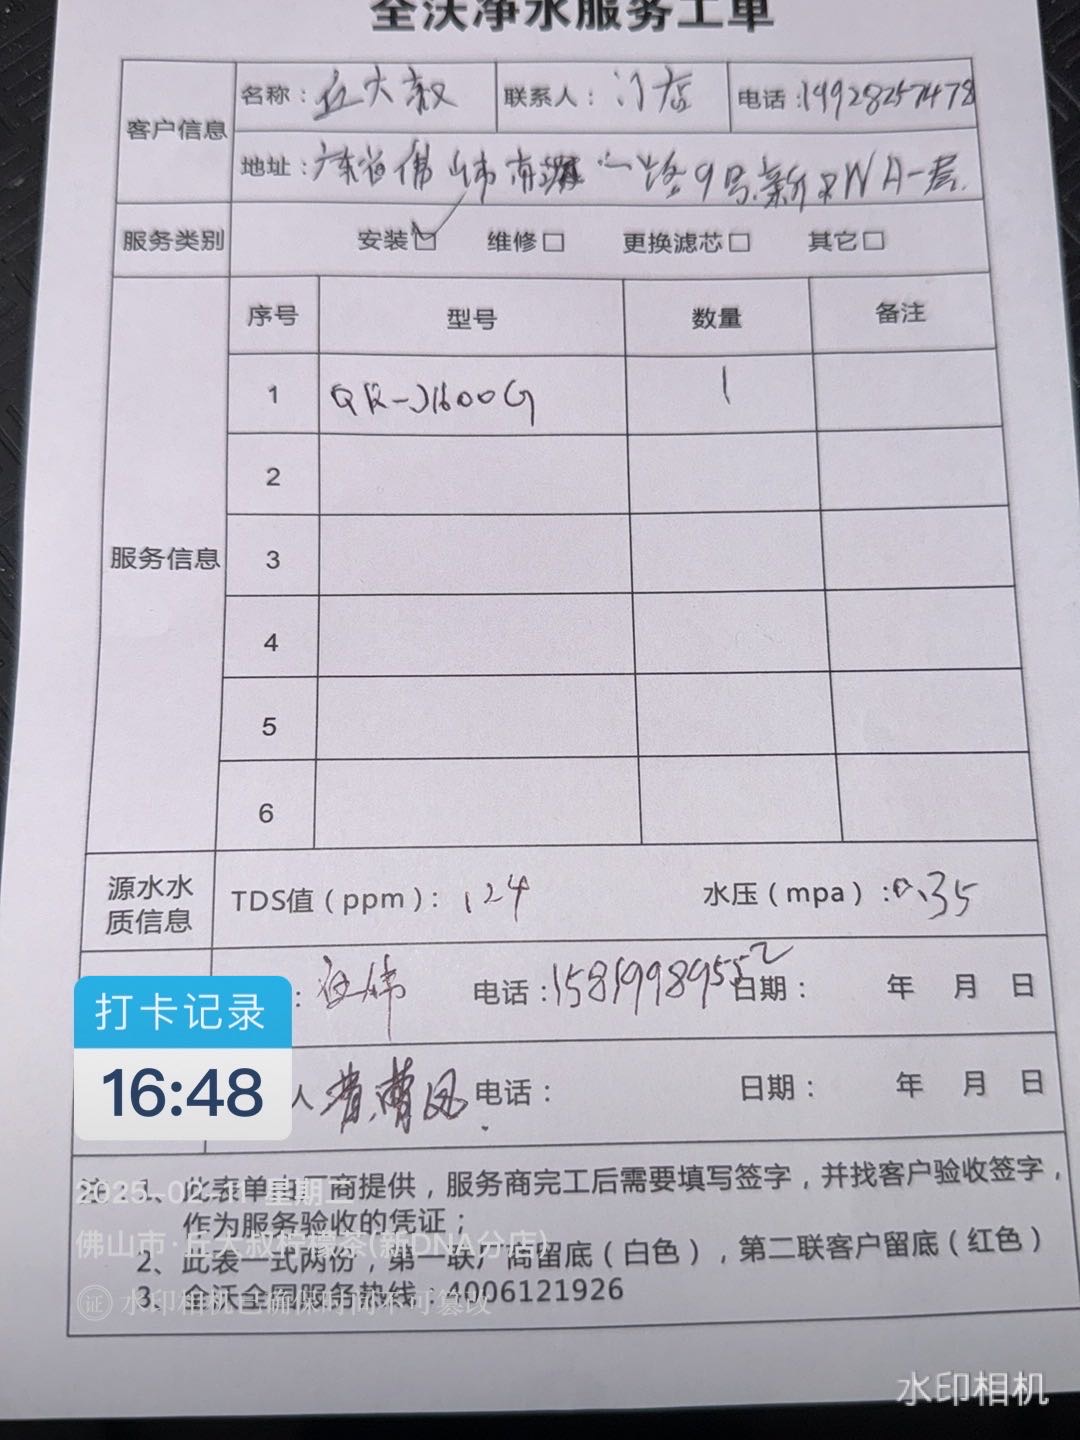 全沃净水服务工单
客户信息
名称：丘大叔 联系人：门店 电话：14928257478
地址：广东省佛山市南海 一路9号新DNA一层
服务类别 安装□ 维修□ 更换滤芯□ 其它□
服务信息
序号 型号 数量 备注
1 QR-J1600G 1
2
3
4
5
6
源水水质信息
TDS值（ppm）：124 水压（mpa）：0.35
电话：15819989552 日期： 年 月 日
人 电话： 日期： 年 月 日
打卡记录
16:48
注：1、此表单由厂商提供，服务商完工后需要填写签字，并找客户验收签字，
作为服务验收的凭证；
2、此表一式两份，第一联厂商留底（白色），第二联客户留底（红色）
3、全沃全国服务热线：4006121926
佛山市·丘大叔柠檬茶(新DNA分店)
证 水印相机已确保时间不可篡改
水印相机